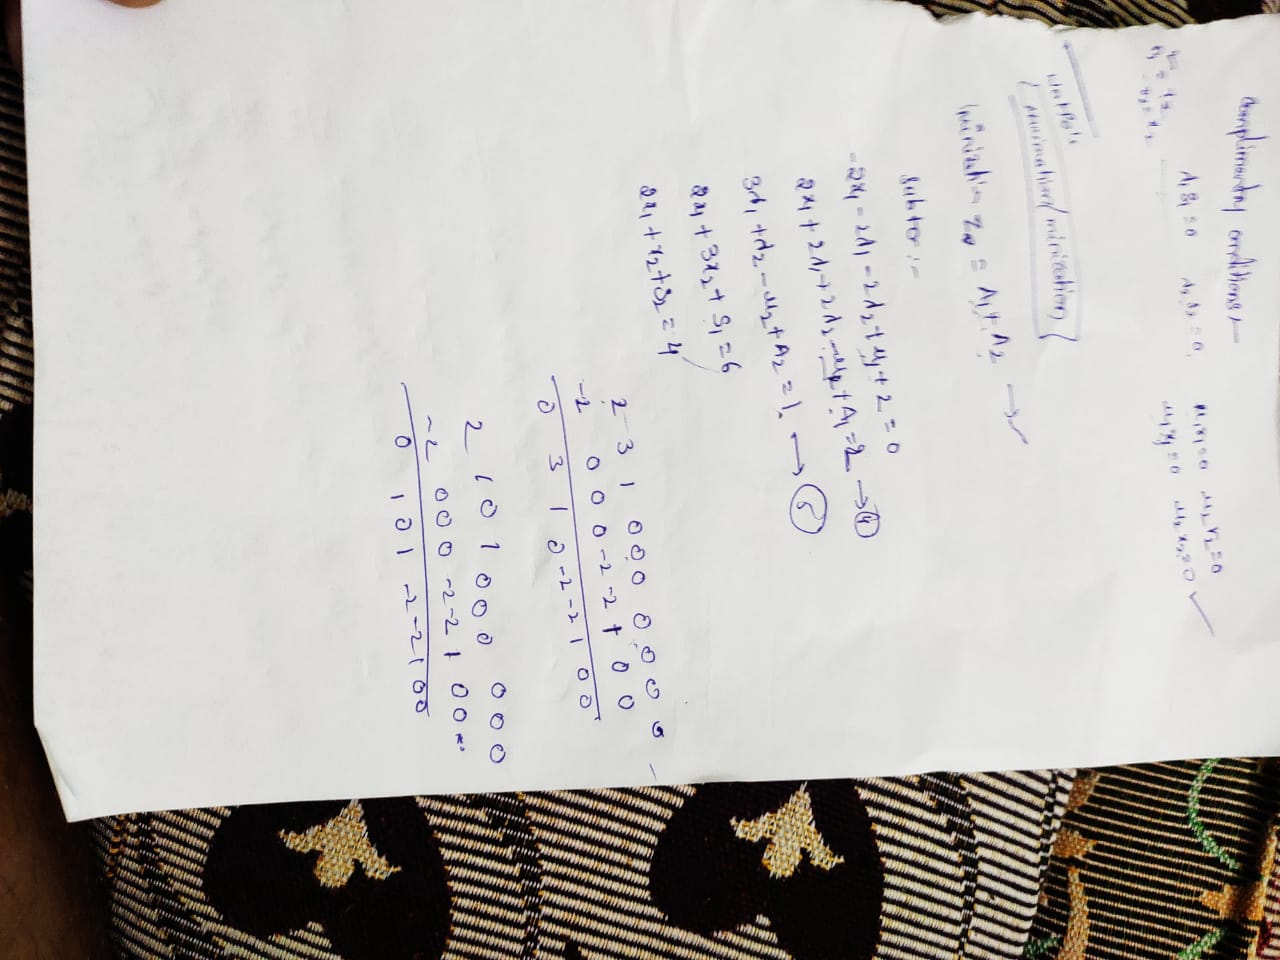 complimentry conditions :-
λ₁S₁ = 0 λ₂S₂ = 0, μ₁r₁ = 0 μ₂r₂ = 0
μ₁x₁ = 0 μ₂x₂ = 0 ✓
= x₂
minimization Z = A₁ + A₂ → ✓
Subto :-
-2x₁ - 2λ₁ - 2λ₂ + μ₁ + 2 = 0
2x₁ + 2λ₁ + 2λ₂ - μ₁ + A₁ = 2 → ④
3λ₁ + λ₂ - μ₂ + A₂ = 1. → ⑤
2x₁ + 3x₂ + S₁ = 6
2x₁ + x₂ + S₂ = 4
2 3 1 0 0 0 0 0 0 0
-2 0 0 0 -2 -2 1 0 0
0 3 1 0 -2 -2 1 0 0
2 1 0 1 0 0 0 0 0 0
-2 0 0 0 -2 -2 1 0 0
0 1 0 1 -2 -2 1 0 0